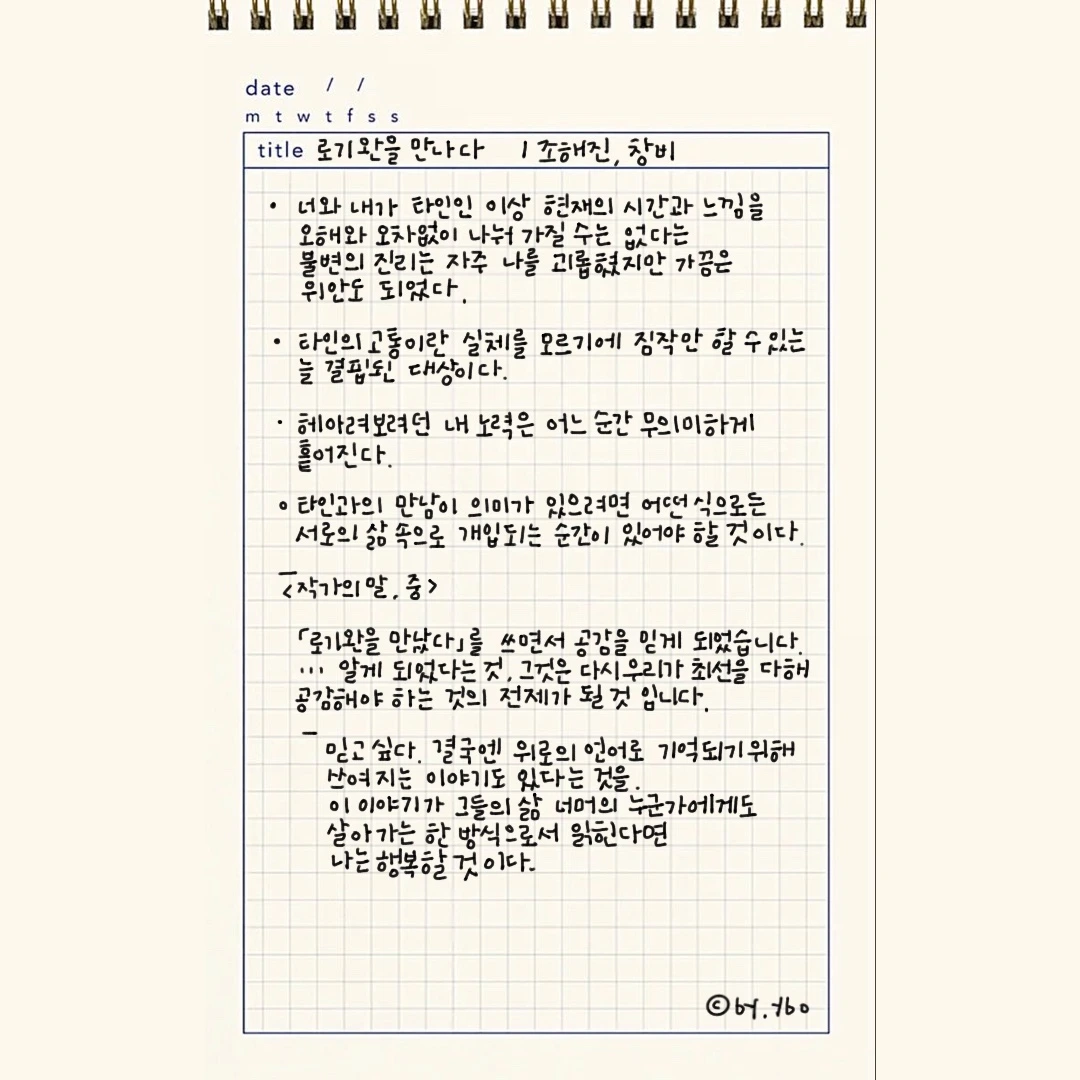 date / /
m t w t f s s
title 로기완을 만나다 | 조해진, 창비
• 너와 내가 타인인 이상 현재의 시간과 느낌을
오해와 오차없이 나눠 가질 수는 없다는
불변의 진리는 자주 나를 괴롭혔지만 가끔은
위안도 되었다.
• 타인의 고통이란 실체를 모르기에 짐작만 할 수 있는
늘 결핍된 대상이다.
• 헤아려보려던 내 노력은 어느 순간 무의미하게
흩어진다.
• 타인과의 만남이 의미가 있으려면 어떤 식으로든
서로의 삶 속으로 개입되는 순간이 있어야 할 것이다.
<작가의 말, 중>
「로기완을 만났다」를 쓰면서 공감을 믿게 되었습니다.
... 알게 되었다는 것, 그것은 다시 우리가 최선을 다해
공감해야 하는 것의 전제가 될 것 입니다.
믿고 싶다. 결국엔 위로의 언어로 기억되기 위해
쓰여지는 이야기도 있다는 것을.
이 이야기가 그들의 삶 너머의 누군가에게도
살아가는 한 방식으로서 읽힌다면
나는 행복할 것이다.
©by.ybo